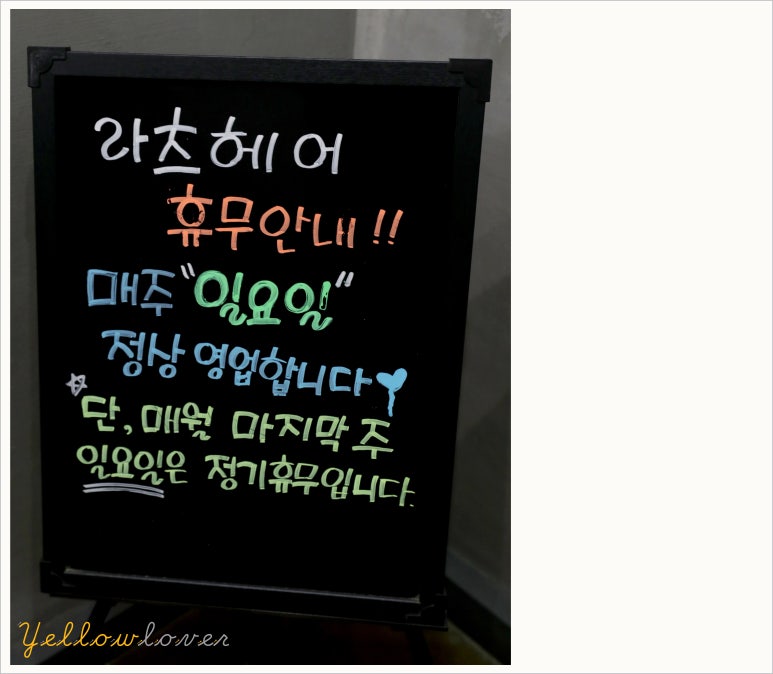 라츠헤어
휴무안내!!
매주 "일요일"
정상 영업합니다
단, 매월 마지막 주
일요일은 정기휴무입니다.
Yellowlover